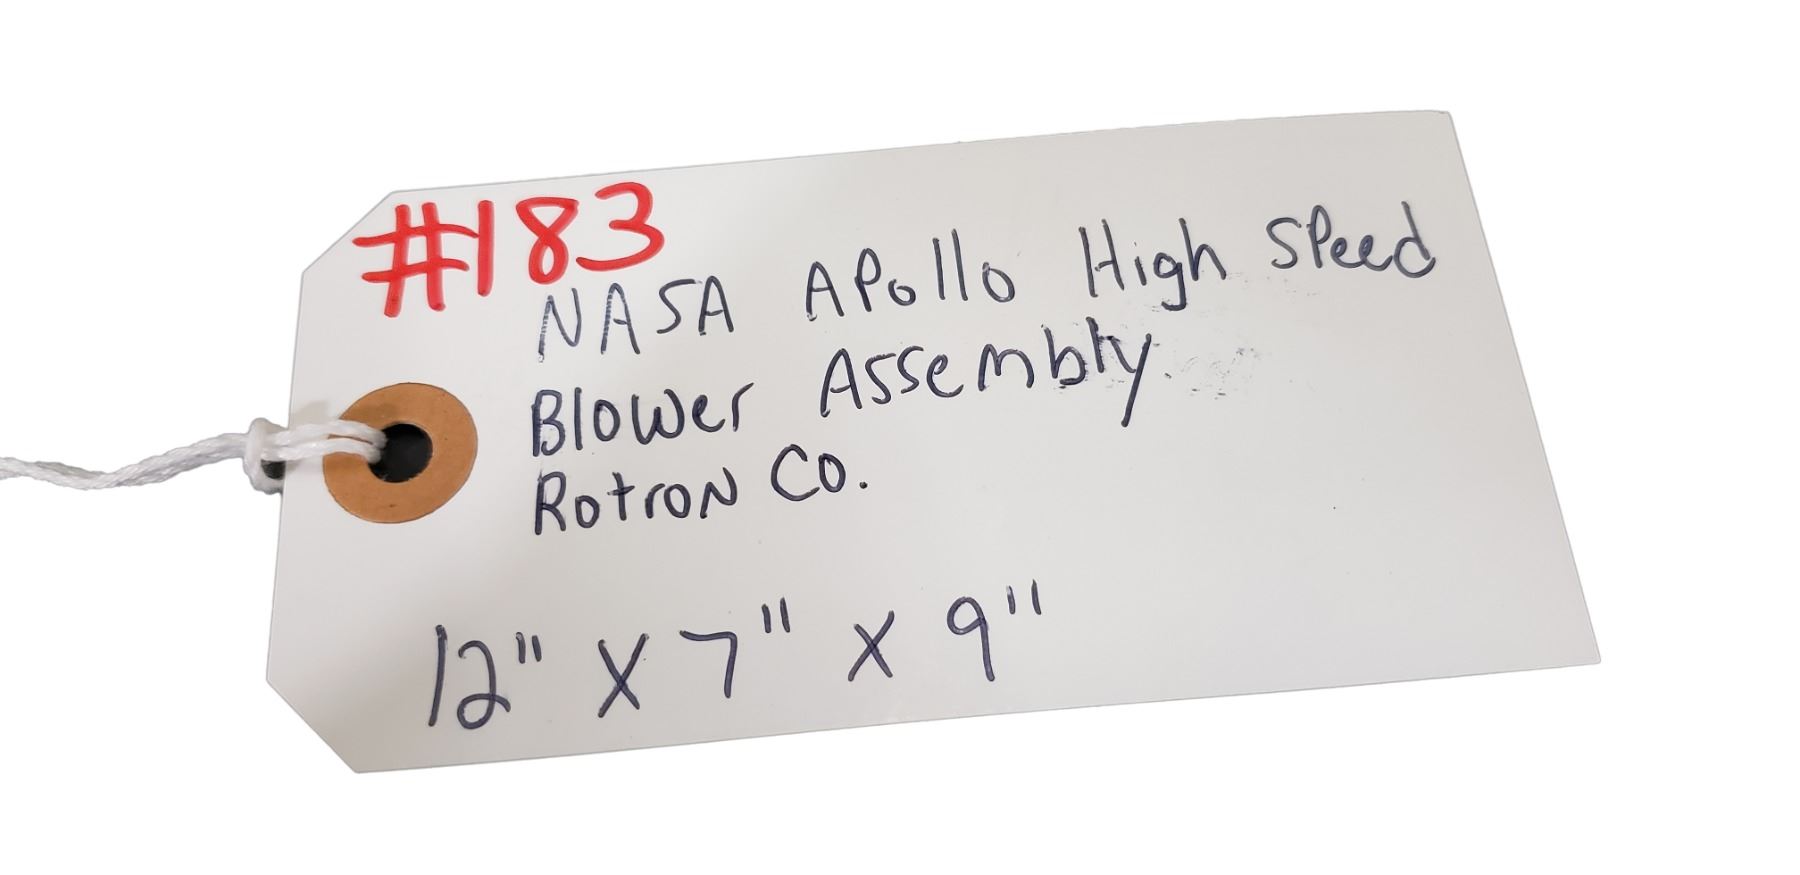 #183
NASA APollo High SPeed
Blower Assembly
RotroN Co.
12" X 7" X 9"